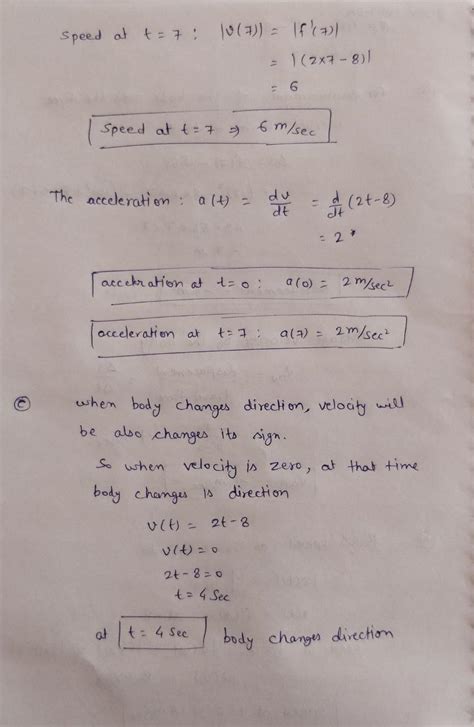 Speed at t = 7 : |v(7)| = |f'(7)|
= |(2x7 - 8)|
= 6
Speed at t = 7 ⇒ 6 m/sec
The acceleration : a(t) = dv/dt = d/dt (2t-8)
= 2
accekration at t = 0 : a(0) = 2 m/sec²
acceleration at t = 7 : a(7) = 2 m/sec²
© when body changes direction, velocity will
be also changes its sign.
So when velocity is zero, at that time
body changes is direction
v(t) = 2t-8
v(t) = 0
2t - 8 = 0
t = 4 Sec
at t = 4 Sec body changes direction